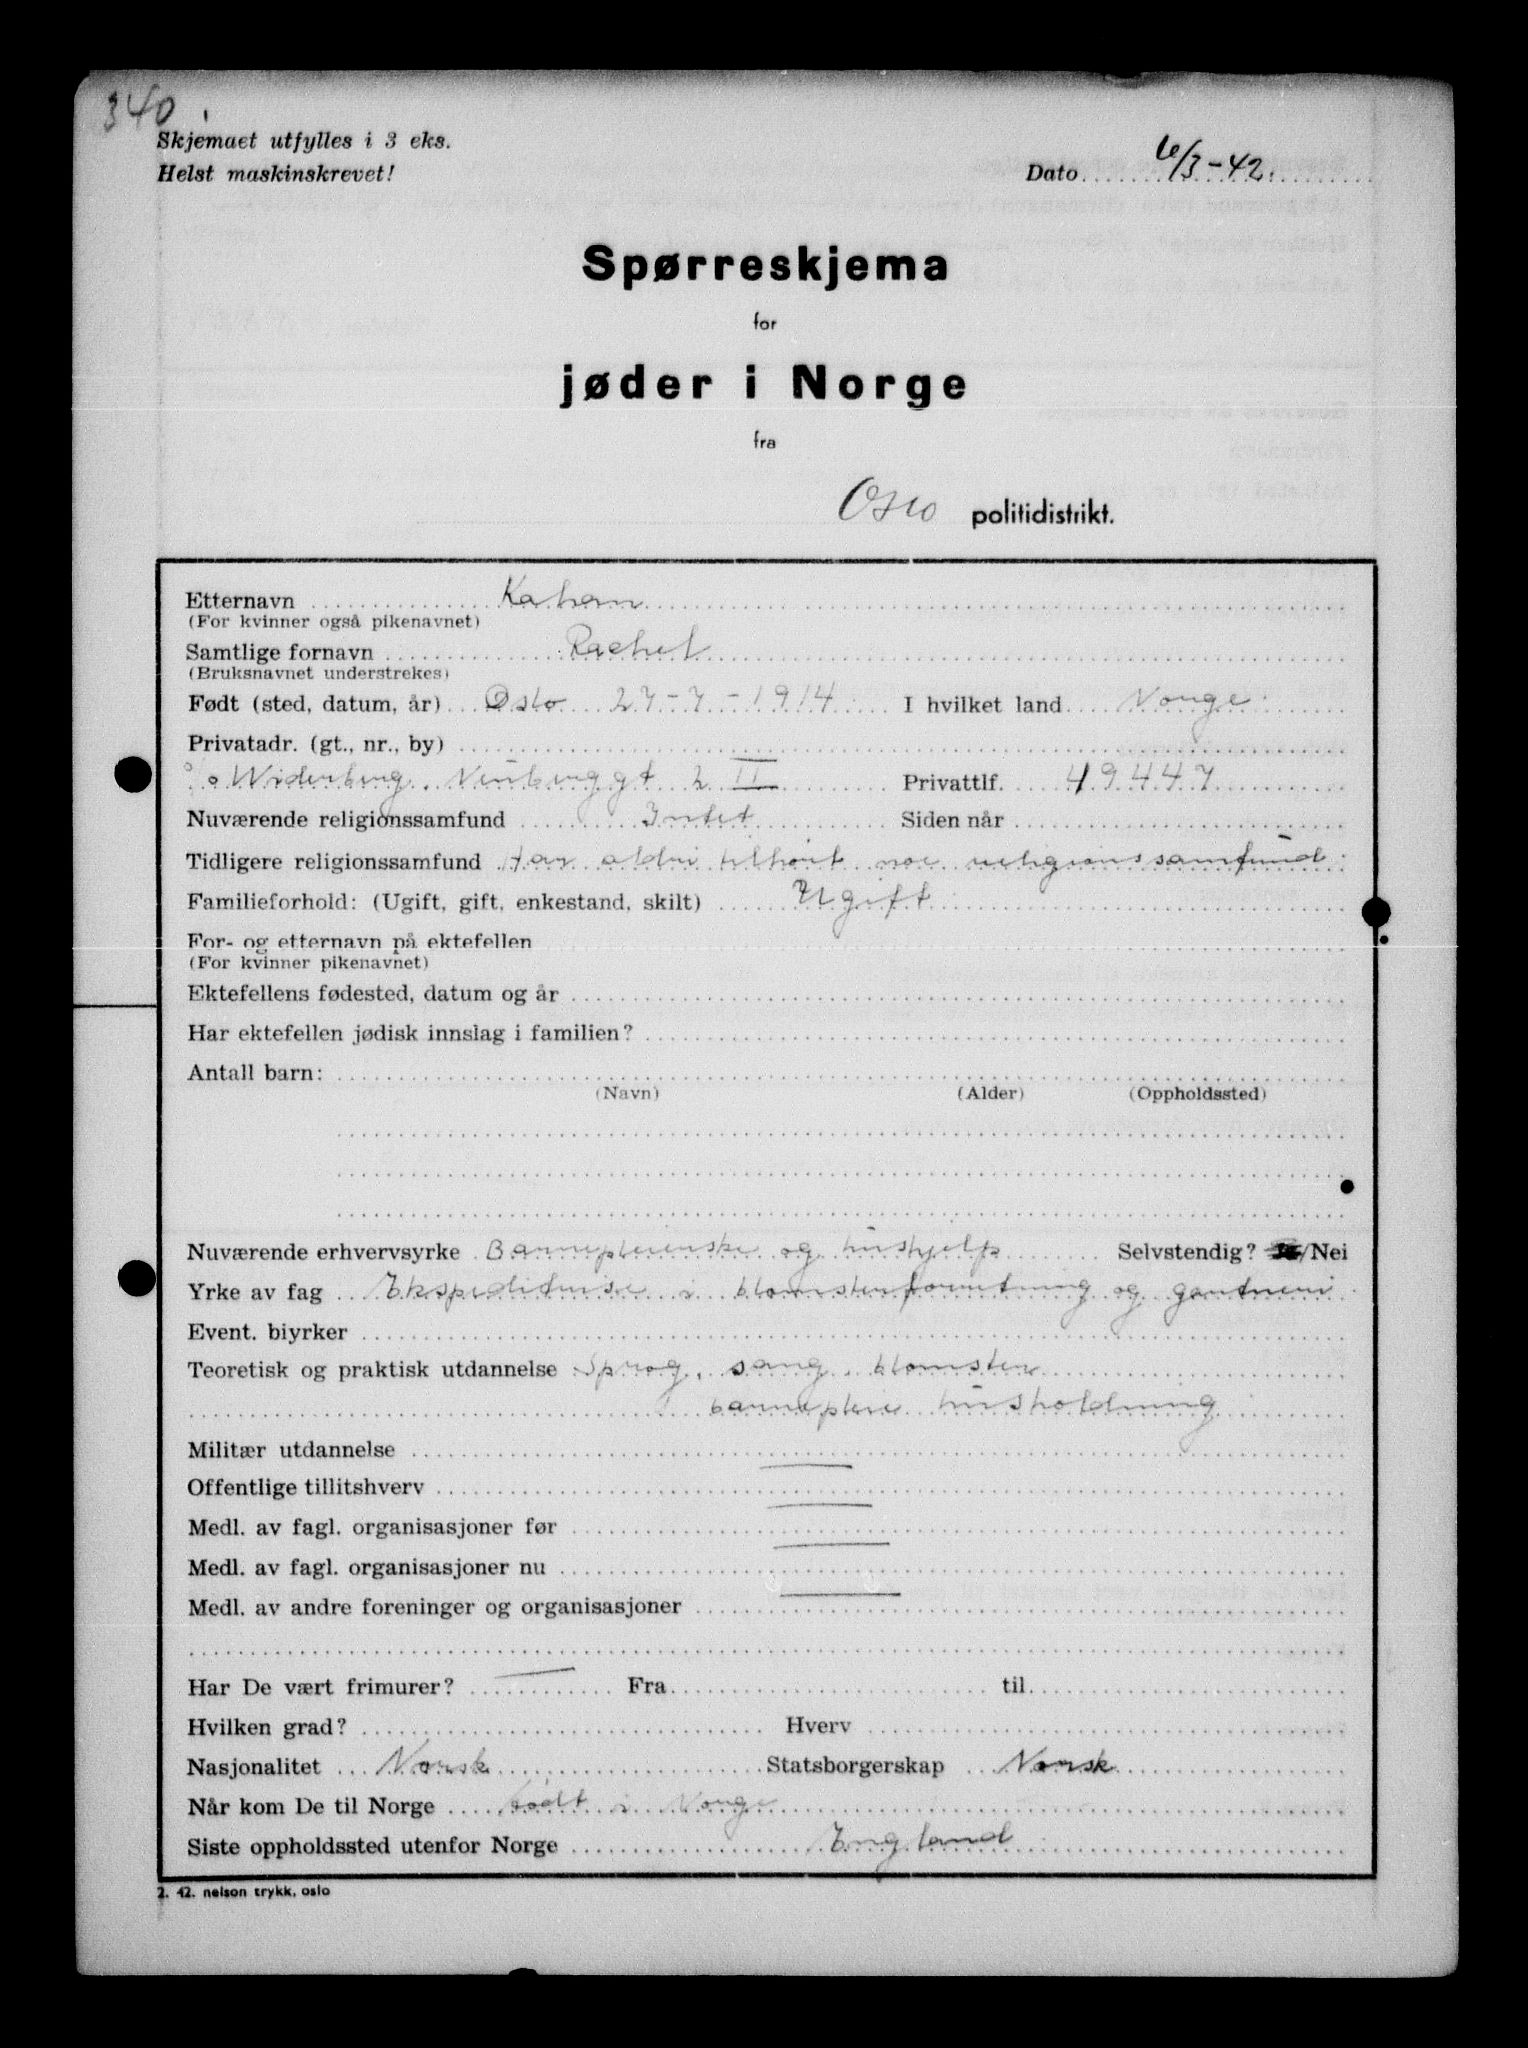 340
Skjemaet utfylles i 3 eks.
Helst maskinskrevet!
Dato 6/3-42.
Spørreskjema
for
jøder i Norge
fra
Oslo politidistrikt.
Etternavn Kahan
(For kvinner også pikenavnet)
Samtlige fornavn Rachel
(Bruksnavnet understrekes)
Født (sted, datum, år) Oslo 27-7-1914 I hvilket land Norge
Privatadr. (gt., nr., by)
c/o Widerberg. Neuberggt 2 II Privattlf. 49447
Nuværende religionssamfund Intet Siden når
Tidligere religionssamfund Har aldri tilhört noe religionssamfund.
Familieforhold: (Ugift, gift, enkestand, skilt) Ugift
For- og etternavn på ektefellen
(For kvinner pikenavnet)
Ektefellens fødested, datum og år
Har ektefellen jødisk innslag i familien?
Antall barn:
(Navn) (Alder) (Oppholdssted)
Nuværende erhvervsyrke Barnepleierske og hushjelp Selvstendig? /Nei
Yrke av fag Ekspeditrise i blomsterforretning og gartneri.
Event. biyrker
Teoretisk og praktisk utdannelse Sprog, sang, blomster
barnepleie husholdning
Militær utdannelse
Offentlige tillitshverv
Medl. av fagl. organisasjoner før
Medl. av fagl. organisasjoner nu
Medl. av andre foreninger og organisasjoner
Har De vært frimurer? — Fra til
Hvilken grad? Hverv
Nasjonalitet Norsk Statsborgerskap Norsk
Når kom De til Norge født i Norge
Siste oppholdssted utenfor Norge England
2. 42. nelson trykk, oslo